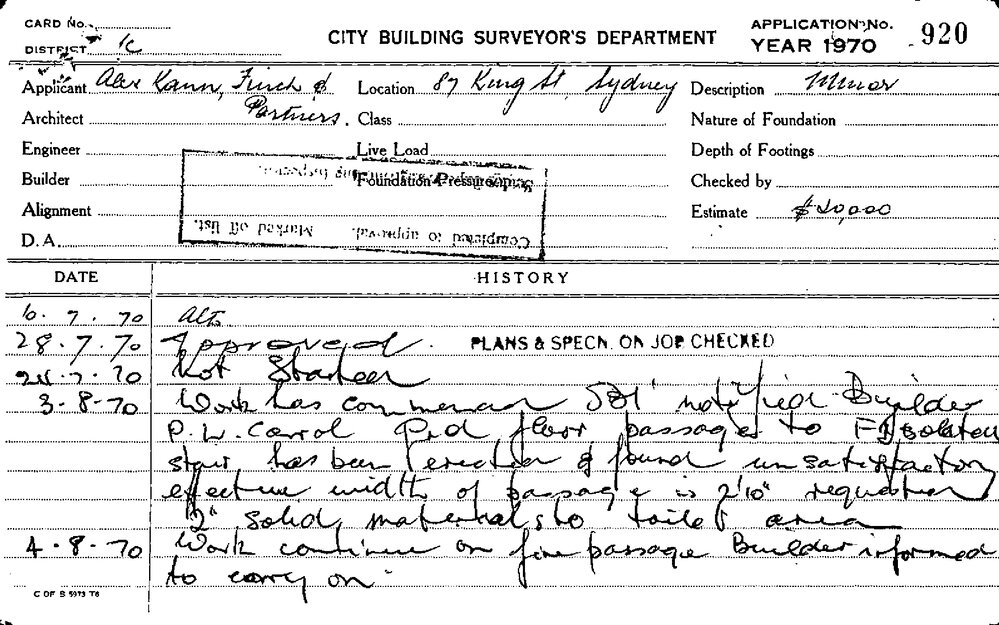 CARD No.
DISTRICT 1C
CITY BUILDING SURVEYOR'S DEPARTMENT
APPLICATION No. 920
YEAR 1970
Applicant Alex Kann, Finch & Partners. Location 87 King St, Sydney Description Minor
Architect Class Nature of Foundation
Engineer Live Load Depth of Footings
Builder Foundation Pressure Checked by
Alignment Estimate $20,000
D.A.
Completed to approval. Marked off list.
DATE HISTORY
6.7.70 Alts.
28.7.70 Approved. PLANS & SPECN. ON JOB CHECKED
7.70 Not Started
3-8-70 Work has commenced notified Builder
P. W. Carrol floor passage to
stair has been erected & found unsatisfactory
effective width of passage is 2'10"
2" solid materials to toilet area
4-8-70 Work continue on fire passage Builder informed
to carry on
C OF S 5973 T6